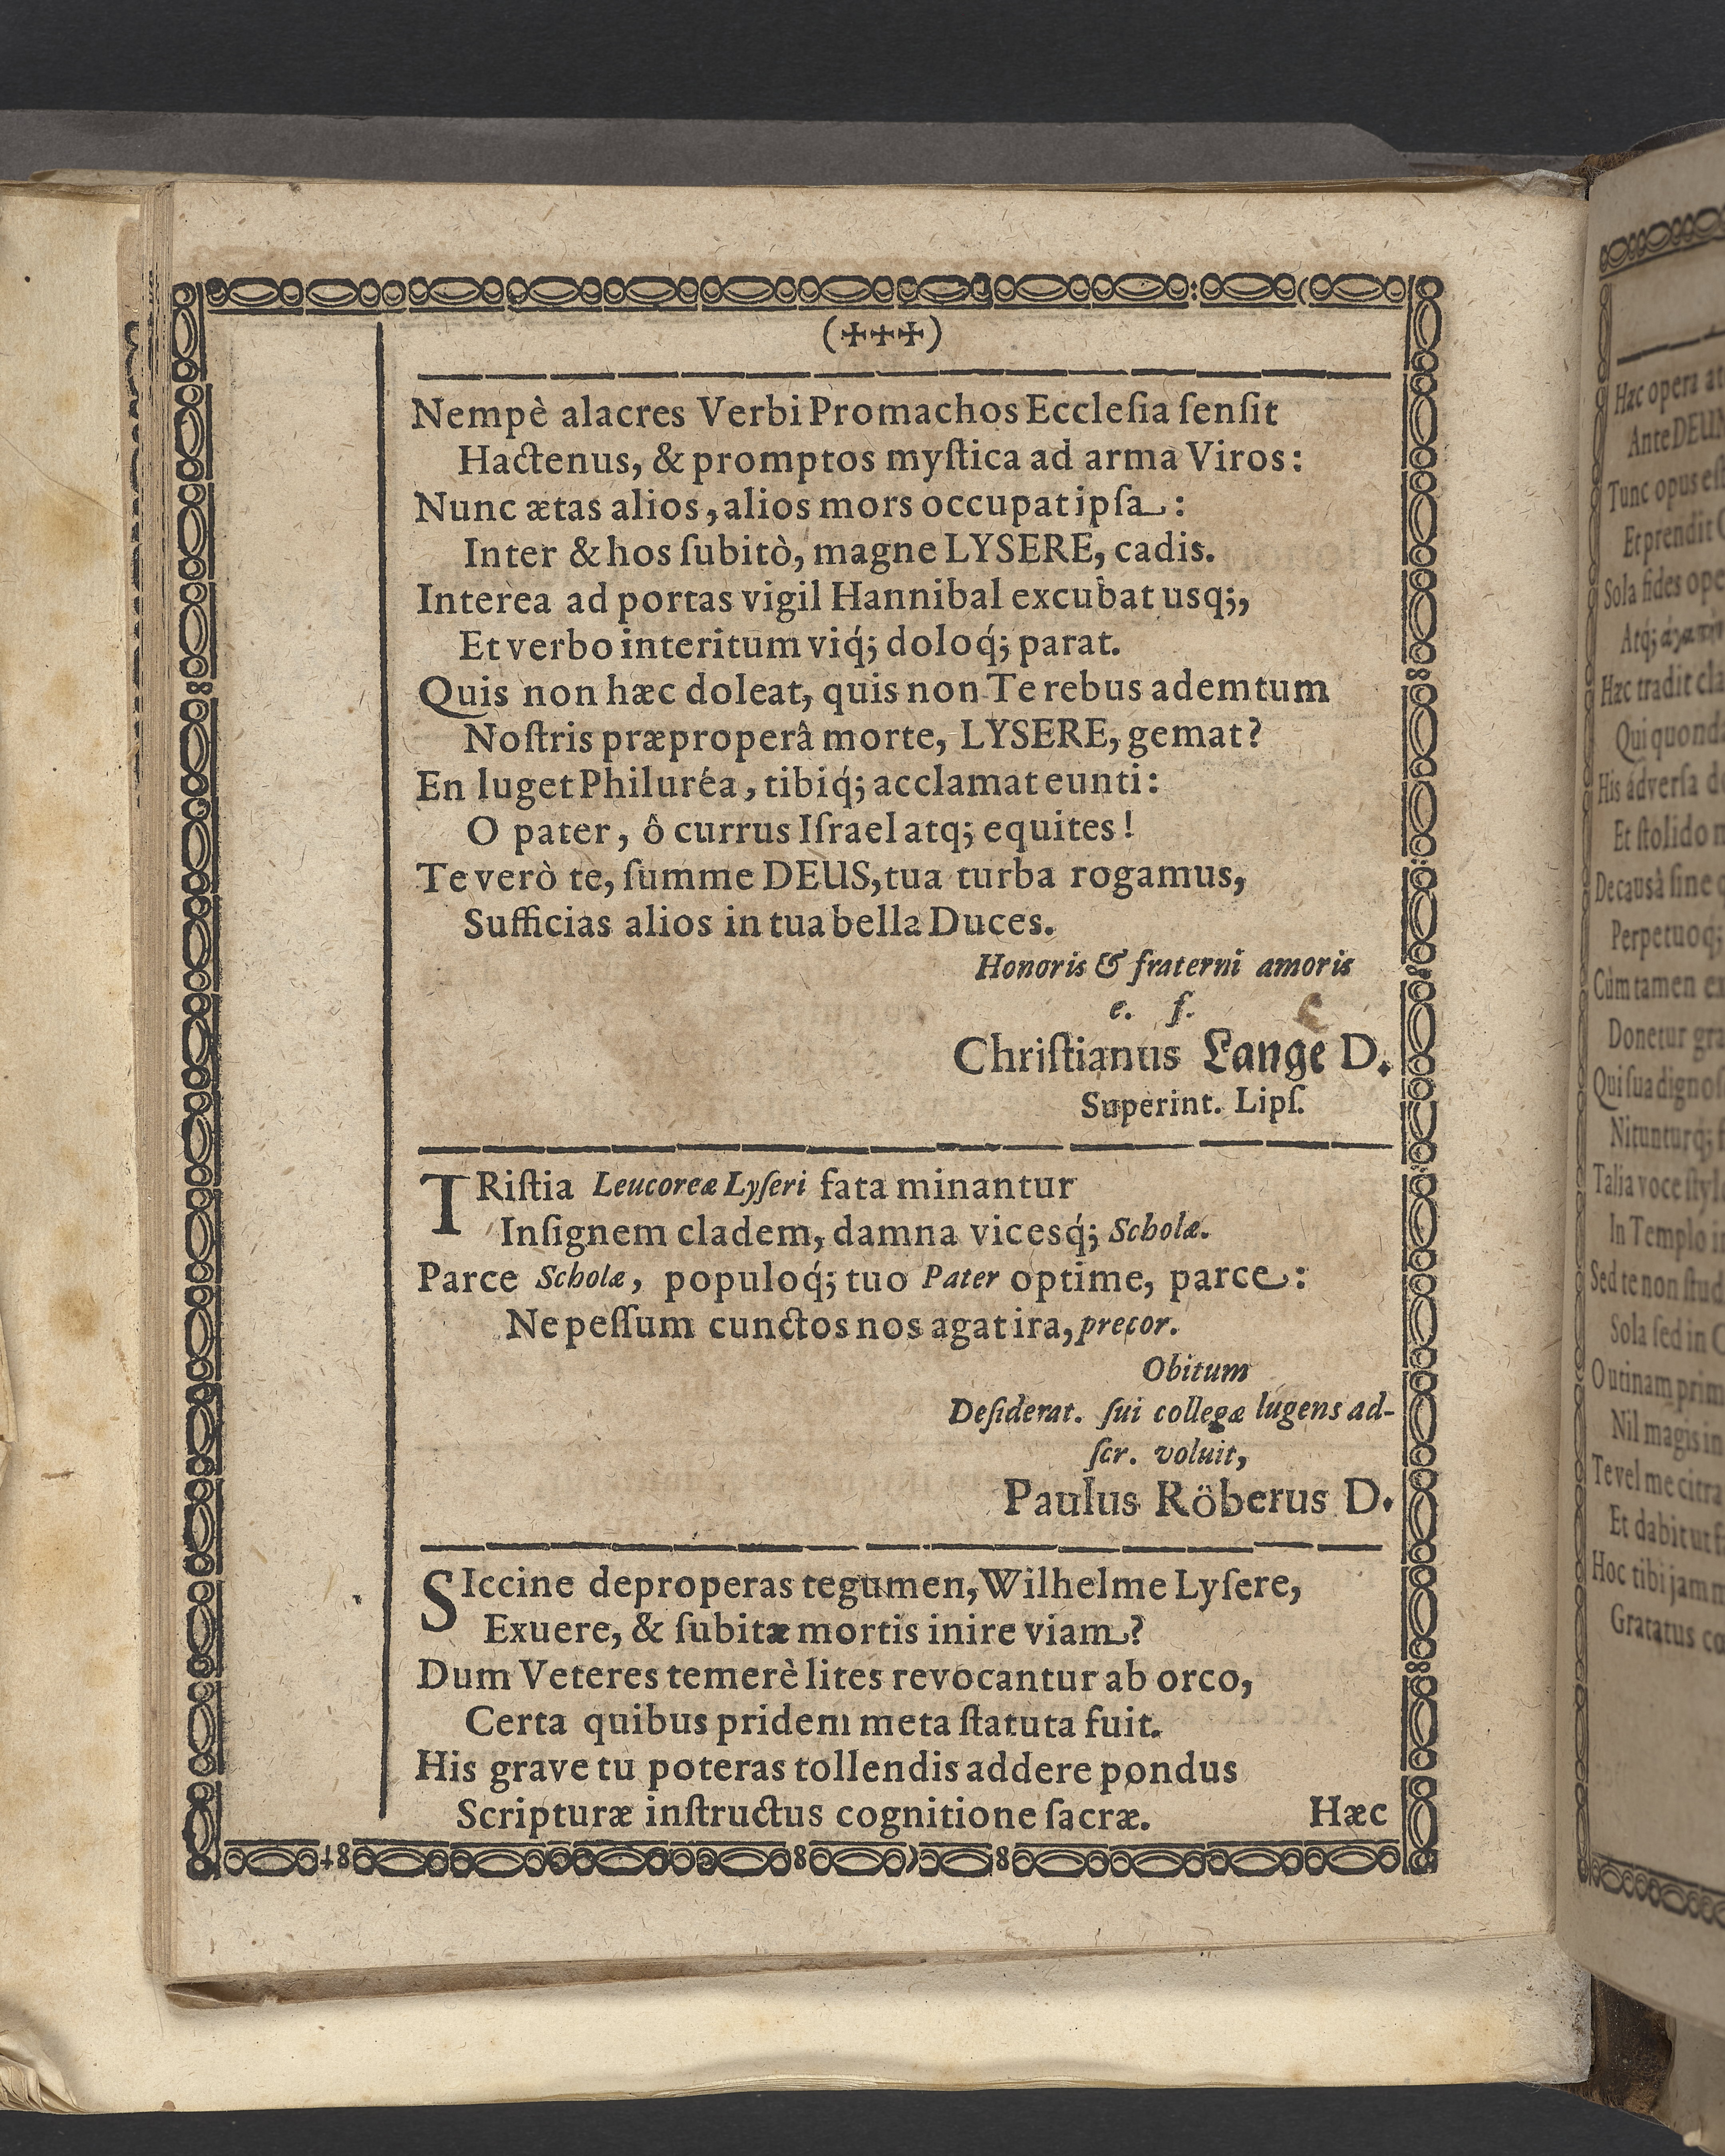 (✠✠✠)
Nempè alacres Verbi Promachos Eccleſia ſenſit
Hactenus, & promptos myſtica ad arma Viros:
Nunc ætas alios, alios mors occupat ipſa:
Inter & hos ſubitò, magne LYSERE, cadis.
Interea ad portas vigil Hannibal excubat usq;,
Et verbo interitum viq́; doloq́; parat.
Quis non hæc doleat, quis non Te rebus ademtum
Noſtris præproperâ morte, LYSERE, gemat?
En luget Philuréa, tibiq́; acclamat eunti:
O pater, ô currus Iſrael atq; equites!
Te verò te, ſumme DEUS, tua turba rogamus,
Sufficias alios in tua bella Duces.
Honoris & fraterni amoris
e. f.
Chriſtianus Lange D.
Superint. Lipſ.
TRiſtia Leucoreæ Lyſeri fata minantur
Inſignem cladem, damna vicesq́; Scholæ.
Parce Scholæ, populoq́; tuo Pater optime, parce:
Ne peſſum cunctos nos agat ira, precor.
Obitum
Deſiderat. ſui collegæ lugens ad-
ſcr. voluit,
Paulus Röberus D.
SIccine deproperas tegumen, Wilhelme Lyſere,
Exuere, & ſubitæ mortis inire viam?
Dum Veteres temerè lites revocantur ab orco,
Certa quibus pridem meta ſtatuta fuit.
His grave tu poteras tollendis addere pondus
Scripturæ inſtructus cognitione ſacræ.
Hæc
Hæc opera
Ante DEUM
Tunc opus eſt
Et prendit
Sola fides
Atq́;
Hæc tradit
Qui
His adverſa
Et ſtolido
De causâ ſine
Perpetuoq́;
Cùm tamen
Donetur
Qui ſua
Nitunturq́;
Talia voce
In Templo
Sed te non
Sola ſed in
O utinam
Nil magis in
Te vel me citra
Et dabit ut
Hoc tibi jam
Gratatus